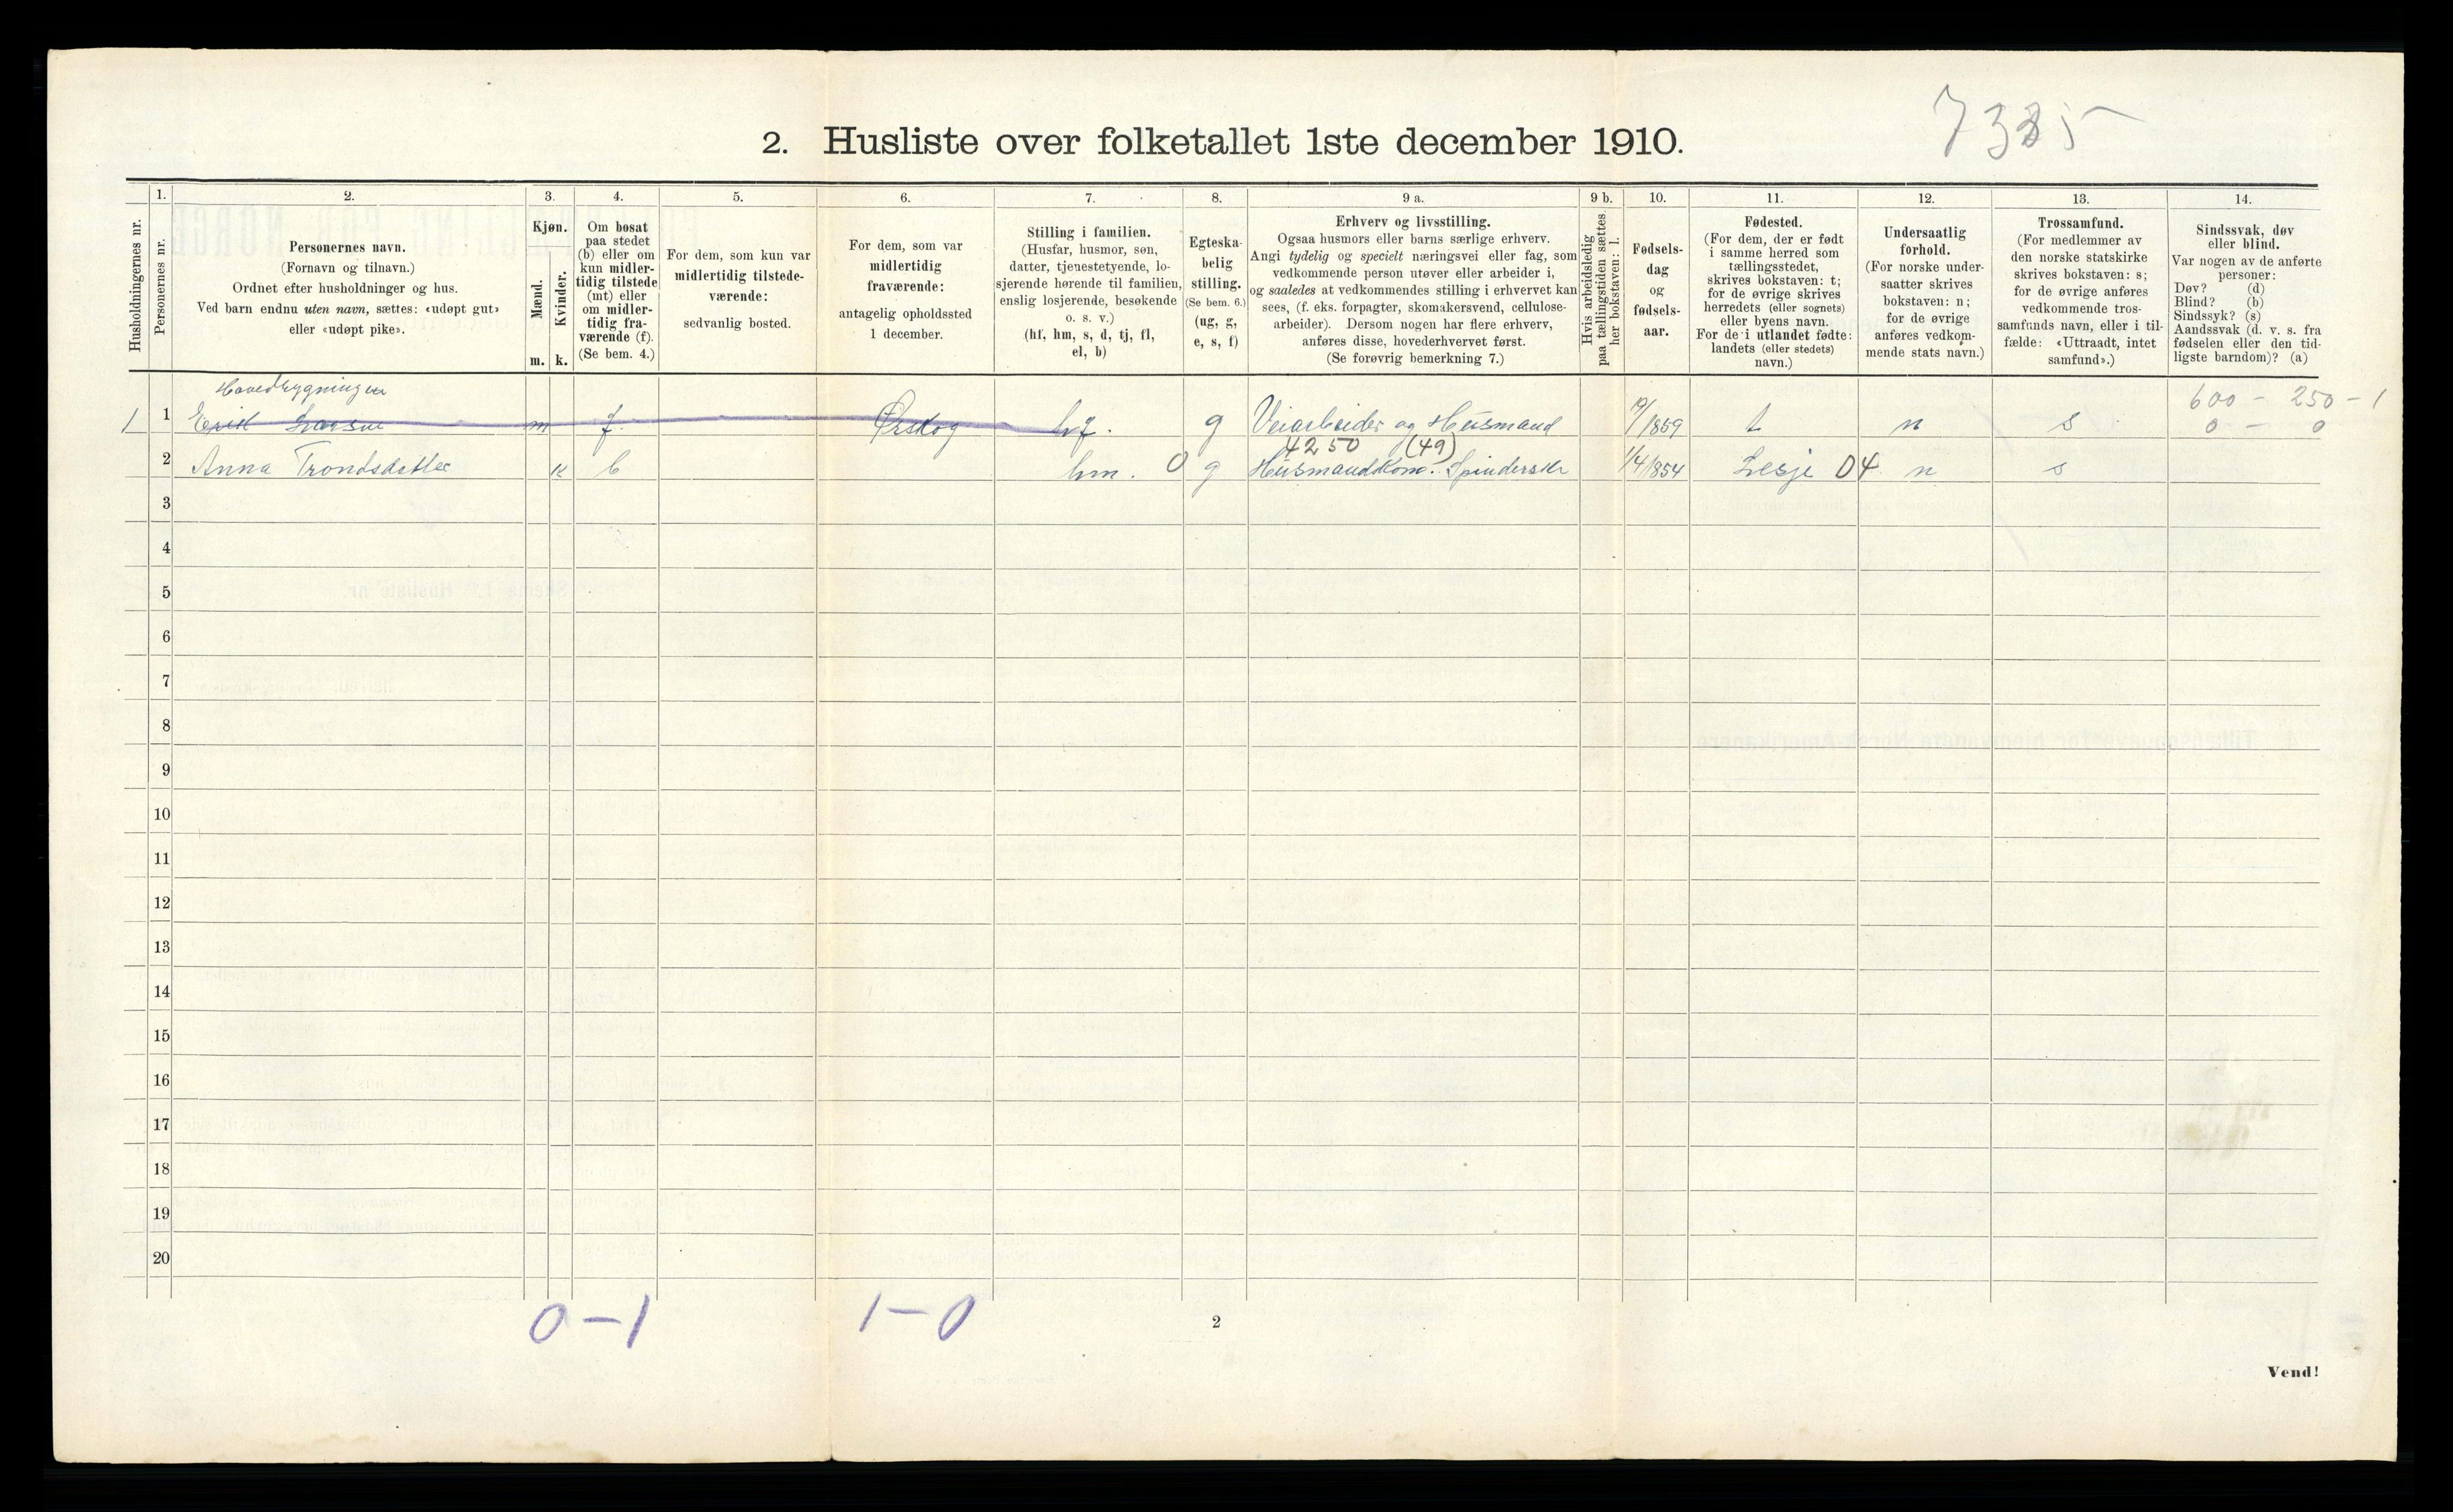 7385
2. Husliste over folketallet 1ste december 1910.
Husholdningernes nr.
1.
Personernes nr.
2.
Personernes navn.
(Fornavn og tilnavn.)
Ordnet efter husholdninger og hus.
Ved barn endnu uten navn, sættes: «udøpt gut»
eller «udøpt pike».
3.
Kjøn.
Mænd.
m.
Kvinder.
k.
4.
Om bosat
paa stedet
(b) eller om
kun midler-
tidig tilstede
(mt) eller
om midler-
tidig fra-
værende (f).
(Se bem. 4.)
5.
For dem, som kun var
midlertidig tilstede-
værende:
sedvanlig bosted.
6.
For dem, som var
midlertidig
fraværende:
antagelig opholdssted
1 december.
7.
Stilling i familien.
(Husfar, husmor, søn,
datter, tjenestetyende, lo-
sjerende hørende til familien,
enslig losjerende, besøkende
o. s. v.)
(hf, hm, s, d, tj, fl,
el, b)
8.
Egteska-
belig
stilling.
(Se bem. 6.)
(ug, g,
e, s, f)
9 a.
Erhverv og livsstilling.
Ogsaa husmors eller barns særlige erhverv.
Angi tydelig og specielt næringsvei eller fag, som
vedkommende person utøver eller arbeider i,
og saaledes at vedkommendes stilling i erhvervet kan
sees, (f. eks. forpagter, skomakersvend, cellulose-
arbeider). Dersom nogen har flere erhverv,
anføres disse, hovederhvervet først.
(Se forøvrig bemerkning 7.)
9 b.
Hvis arbeidsledig
paa tællingstiden sættes
her bokstaven: l.
10.
Fødsels-
dag
og
fødsels-
aar.
11.
Fødested.
(For dem, der er født
i samme herred som
tællingsstedet,
skrives bokstaven: t;
for de øvrige skrives
herredets (eller sognets)
eller byens navn.
For de i utlandet fødte:
landets (eller stedets)
navn.)
12.
Undersaatlig
forhold.
(For norske under-
saatter skrives
bokstaven: n;
for de øvrige
anføres vedkom-
mende stats navn.)
13.
Trossamfund.
(For medlemmer av
den norske statskirke
skrives bokstaven: s;
for de øvrige anføres
vedkommende tros-
samfunds navn, eller i til-
fælde: «Uttraadt, intet
samfund».)
14.
Sindssvak, døv
eller blind.
Var nogen av de anførte
personer:
Døv? (d)
Blind? (b)
Sindssyk? (s)
Aandssvak (d. v. s. fra
fødselen eller den tid-
ligste barndom)? (a)
Hovedbygningen
600 - 250 - 1
1 1 Erik Larsen m f. Ørskog hf. g Veiarbeider og Husmand 19/ /1859 t n s 0 - 0
4250 (49)
2 Anna Trondsdatter k b hm. 0 g Husmandskone. Spinderske 1/4 1854 Lesje 04 n s
3
4
5
6
7
8
9
10
11
12
13
14
15
16
17
18
19
20
0 - 1 1 - 0
2
Vend!